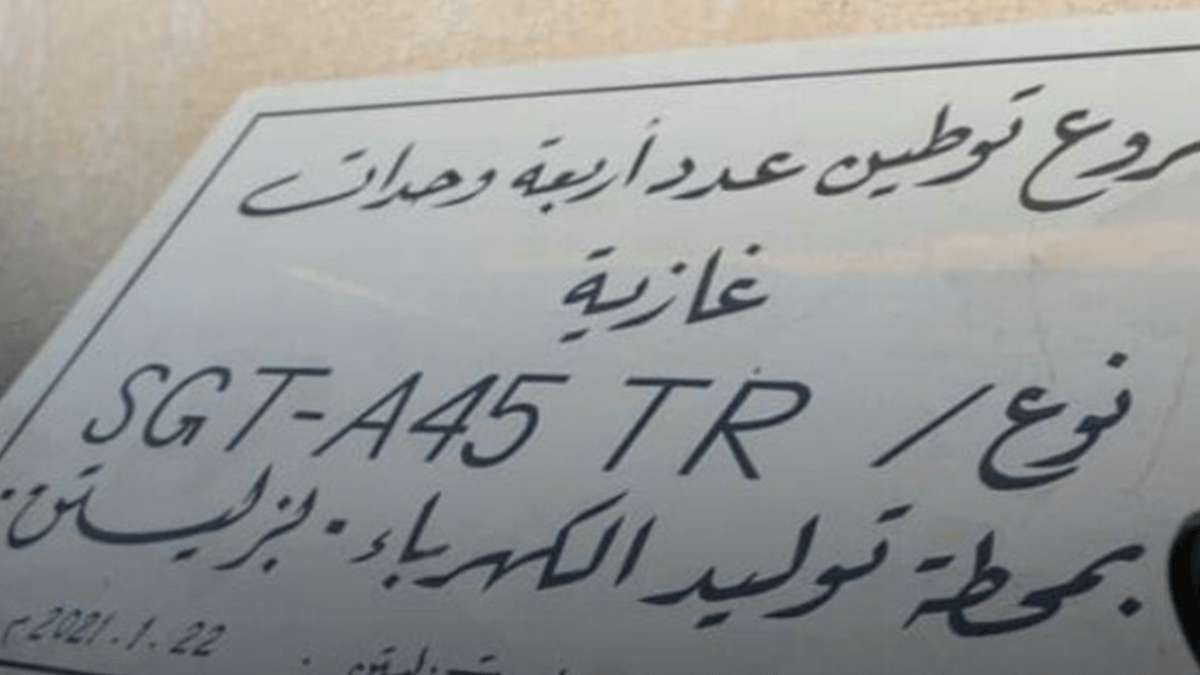 روع توطين عدد أربعة وحدات
غازية
نوع / SGT-A45 TR
بمحطة توليد الكهرباء . بزليتن .
22 . 1 . 2021 م